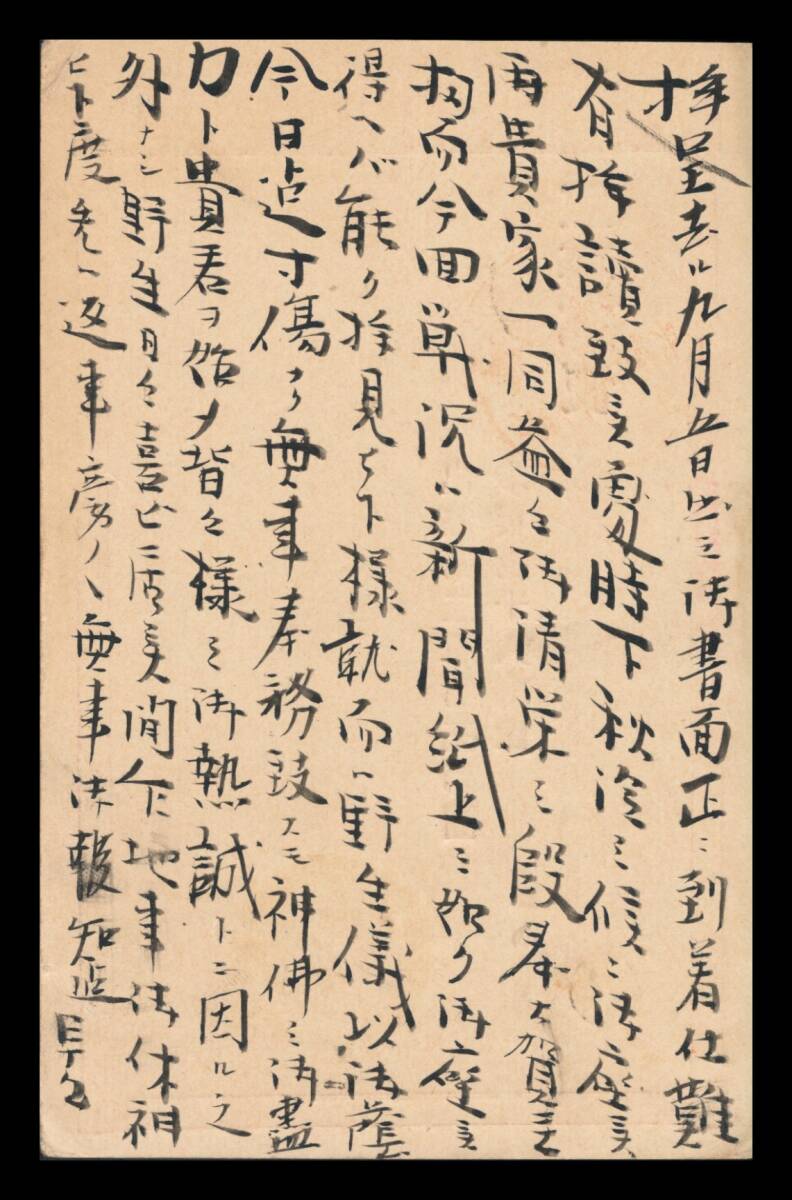 拝呈去ル九月五日出之御書面正ニ到着仕難
有拝讀致シ候時下秋冷之候ニ御座候
尚貴家一同益々御清栄之段奉大賀候
扨而今回戦況ハ新聞紙上之如ク御座候
得ヘバ能ク拝見被下様就而ハ野生儀以御蔭
今日迄寸傷ナク無事奉務致スモ神佛之御盡
力ト貴君ヲ始メ皆々様之御熱誠トニ因ル之
外ナシ野生日々喜ビ居候間乍他事御休神
被下度先ハ返事旁々無事御報知迄 早々